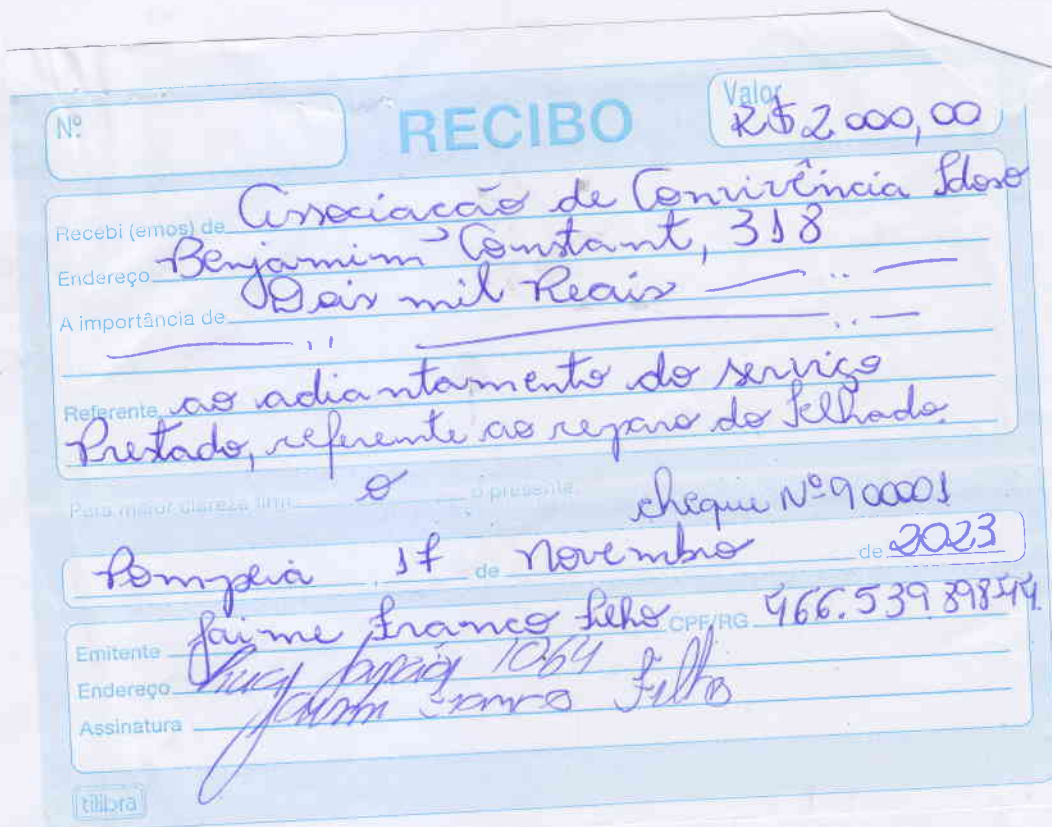 Nº
RECIBO
Valor
R$ 2.000,00
Recebi (emos) de Associacão de Convivência Idoso
Endereço Benjamim Constant, 318
A importância de Dois mil Reais
Referente ao adiantamento do serviço
Prestado, referente ao reparo do telhado.
Para maior clareza firm o o presente.
cheque Nº 900001
Pompeia, 17 de Novembro de 2023
Emitente Jaime Franco Filho CPF/RG 466.539 898-44
Endereço 1064
Assinatura Jaime Franco Filho
tilibra